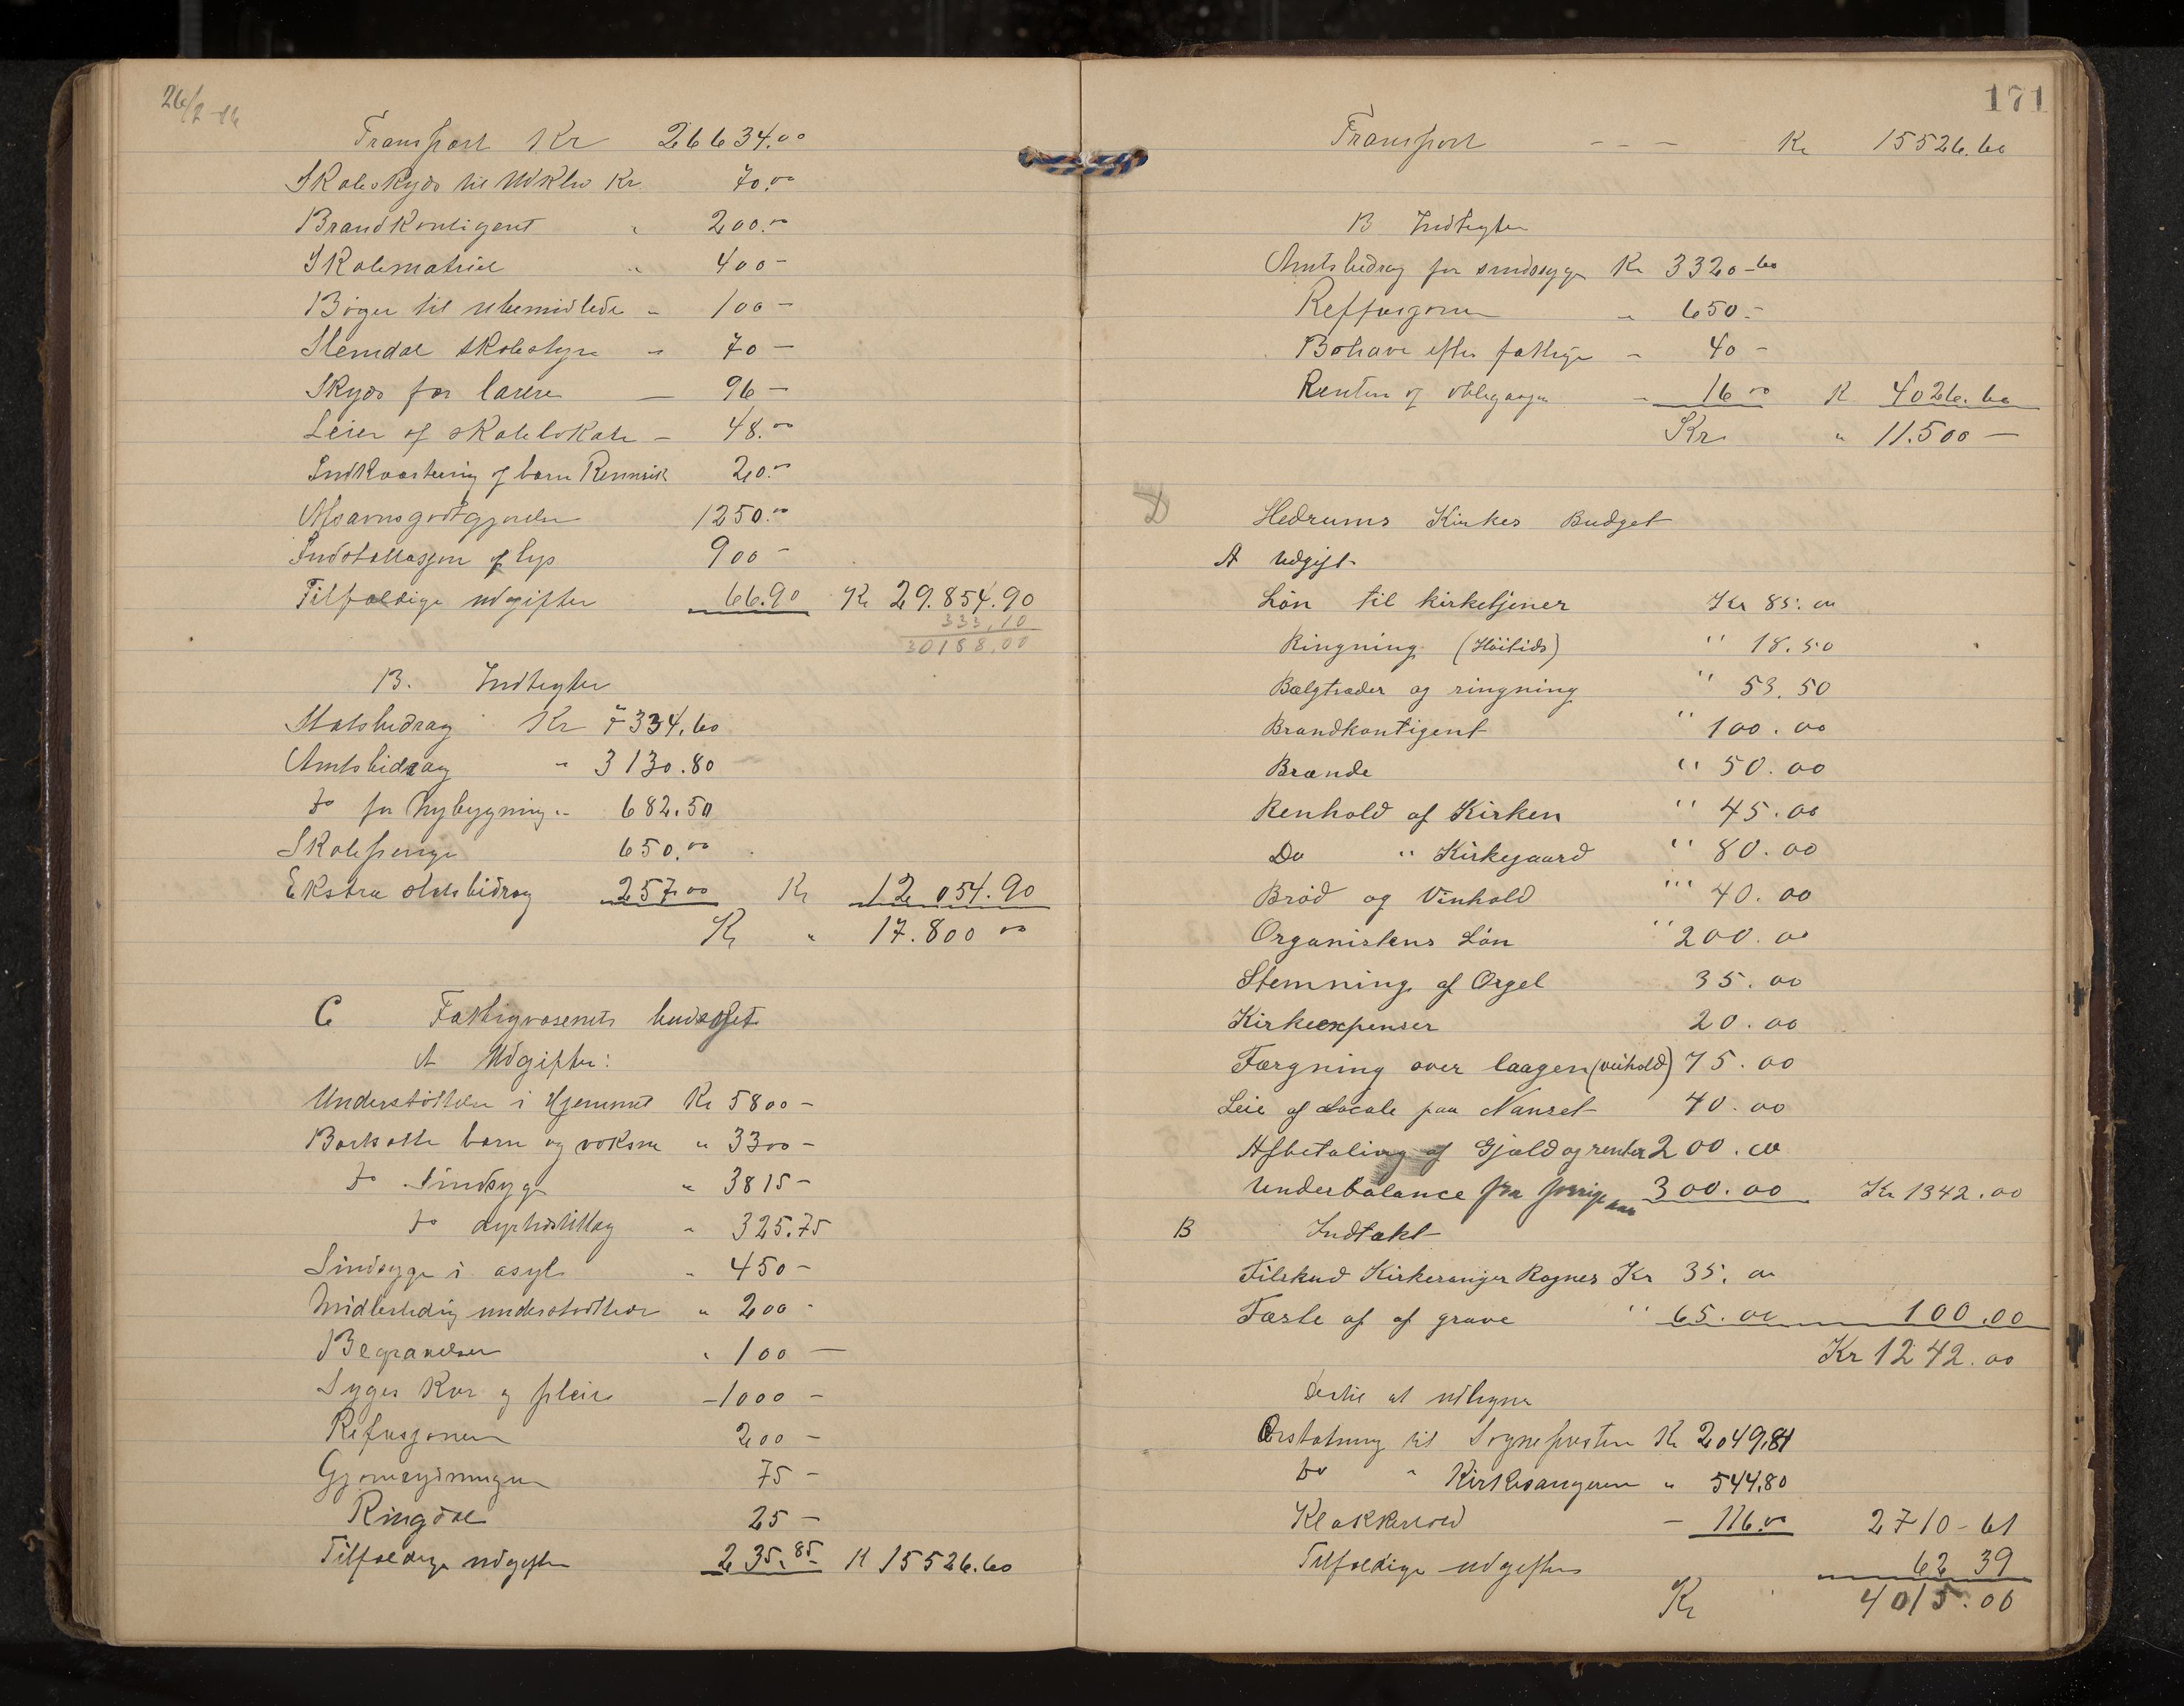 26/2-16
Transport Kr 26634.00
Skoleskyds til Kr 70.00
Brandkontigent " 200.00
Skolematriel " 400 -
Bøger til ubemidlede " 100 -
Skolestyre " 70 -
Skyds for lærere — 96 -
Leier af skolelokale - 48.00
Indkvartering af børn 20.00
1250.00
Indstallasjon af lys 900 -
Tilfældige udgifter 66.90 Kr 29.854.90
333,10
30188,00
B. Indtegter
Statsbidrag Kr 7334.60
Amtsbidrag " 3130.80
do for Nybygning " 682.50
Skolepenge 650.00
Ekstra statsbidrag 257.00 Kr 12 054.90
Kr " 17.800 00
C Fattigvæsenets budsjet
A Udgifter:
Understöttelse i Hjemmet Kr 5800 -
Bortsatte børn og voksne " 3300 -
do Sindsyge " 3815 -
do dyrtidstillæg " 325.75
Sindsyge i asyl " 450 -
Midlertidig understøttelse " 200 -
Begravelser " 100 —
Syges Kur og pleie - 1000 -
Refusjoner 200 -
75 -
Ringdal 25 -
Tilfældige udgifter 235.85 K 15526.60
171
Transport - - - Kr 15526.60
B Indtegter
Amtsbidrag for sindssyge Kr 3320-60
Reffusjoner " 650.-
Bohave efter fattige - 40 -
Renter af obligasjon - 16 00 K 4026.60
Kr. " 11.500 —
D Hedrums Kirkes Budget
A Udgift
Lön til kirketjener Kr 85.00
Ringning (Höitids) " 18.50
Bælgtræder og ringning " 53.50
Brandkontigent " 100.00
Brænde " 50.00
Renhold af Kirken " 45.00
Do " Kirkegaard " 80.00
Bröd og Vinhold " 40.00
Organistens Lön " 200.00
Stemning af Orgel 35.00
Kirkeexpenser 20.00
Færgning over laagen (veihold) 75.00
Leie af Locale paa Nanset 40.00
Afbetaling af Gjæld og renter 200.00
Underbalance fra forrige aar 300.00 Kr 1342.00
B Indtækt
Tilskud Kirkesanger Rognes Kr 35.00
Fæste af af grave " 65.00 100.00
Kr 1242.00
dertil at utligne
Erstatning til Sognepresten Kr 2049.81
Do " Kirkesangeren " 544.80
Klokkerved - 116.00 2710-61
Tilfældige udgifter 62 39
Kr " 4015.00